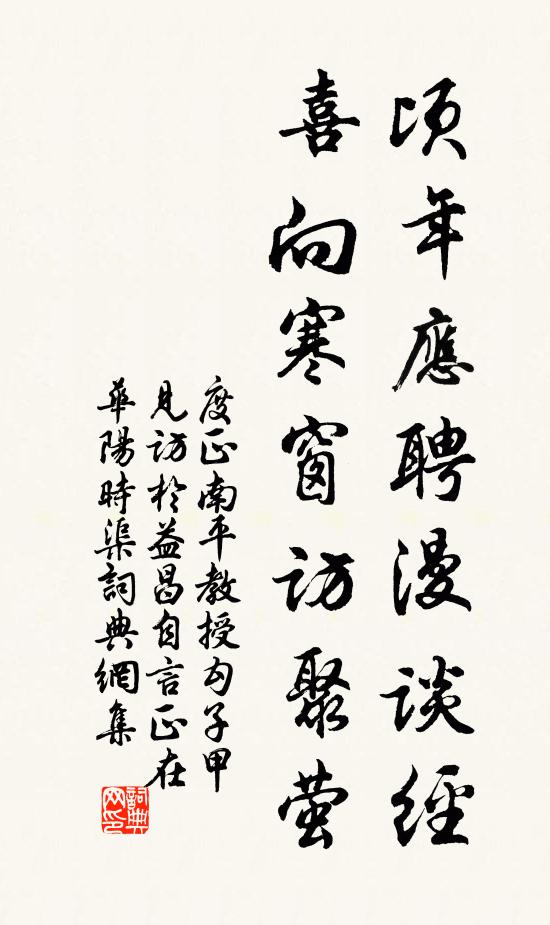 頃年應聘漫談經
喜向寒窗訪聚螢
度正南平教授勾子甲
見訪於益昌自言正在
華陽時渠詞典網集
詞典
网印